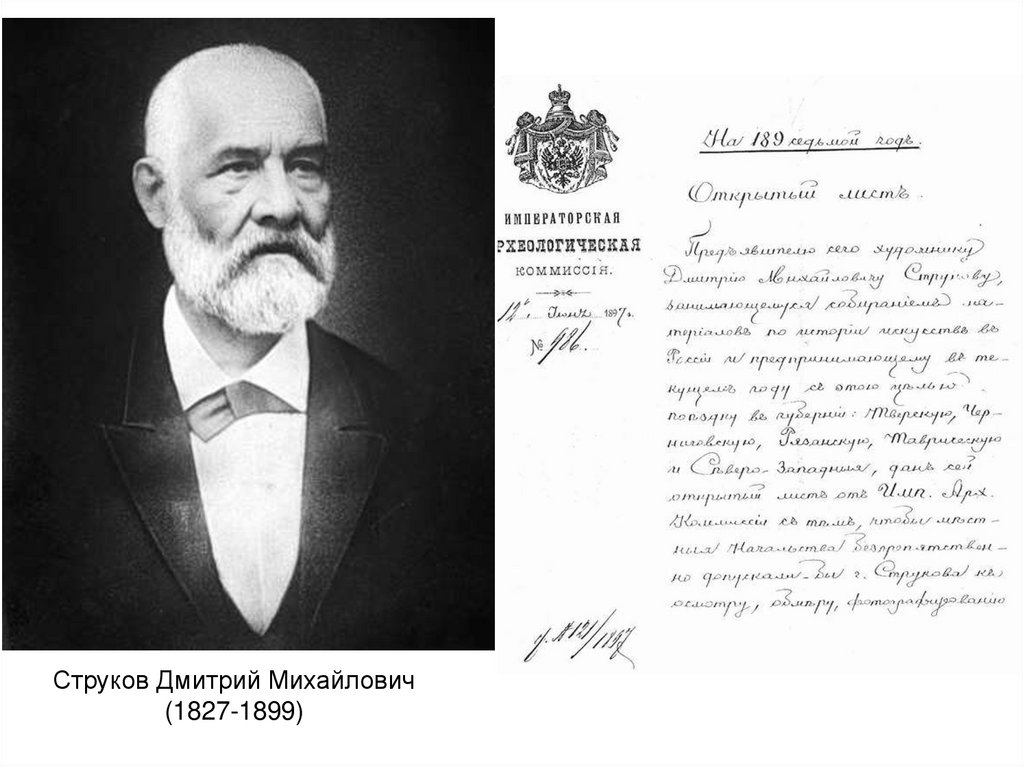 ИМПЕРАТОРСКАЯ
РХЕОЛОГИЧЕСКАЯ
КОММИССІЯ.
12го Іюня 1897 г.
№ 986.
д. № 121/1897
На 189 седьмой годъ.
Открытый листъ.
Предъявителю сего художнику
Дмитрію Михайловичу Струкову,
занимающемуся собираніемъ ма-
теріаловъ по исторіи искусствъ въ
Россіи и предпринимающему въ те-
кущемъ году съ этою цѣлью
поѣздку въ губерніи: Тверскую, Чер-
ниговскую, Рязанскую, Таврическую
и Сѣверо-Западныя, данъ сей
открытый листъ отъ Имп. Арх.
Коммиссіи съ тѣмъ, чтобы мѣст-
ныя Начальства безпрепятствен-
но допускали-бы г. Струкова къ
осмотру, обмѣру, фотографированію
Струков Дмитрий Михайлович
(1827-1899)